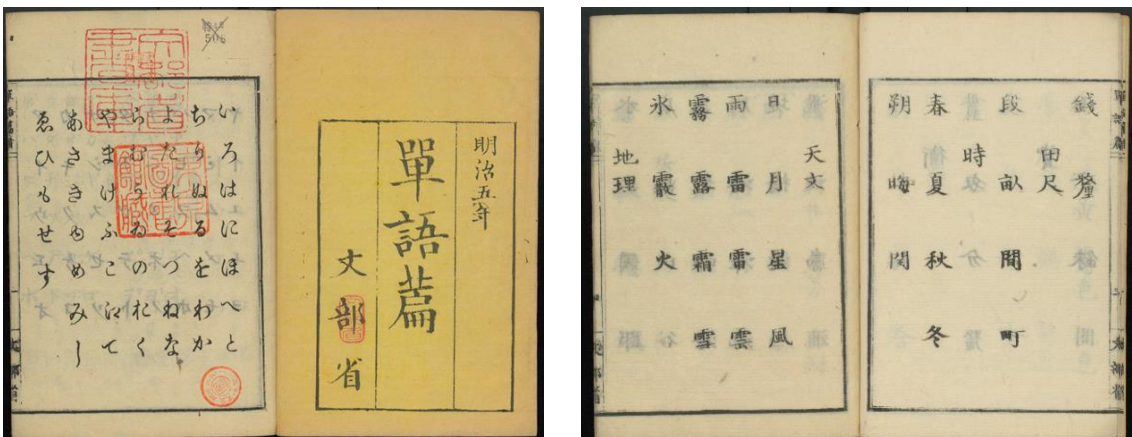 明治五年
單語篇
文部省
いろはにほへと
ちりぬるをわか
よたれそつねな
らむうゐのおく
やまけふこえて
あさきゆめみし
ゑひもせす
文部省
書庫
東京
圖書
館藏
錢 釐
田尺
段 畝 間 町
時
春 夏 秋 冬
朔 晦 閏
天文
日 月 星 風
雨 雷 電 雲
霧 露 霜 雪
氷 霰 火
地理